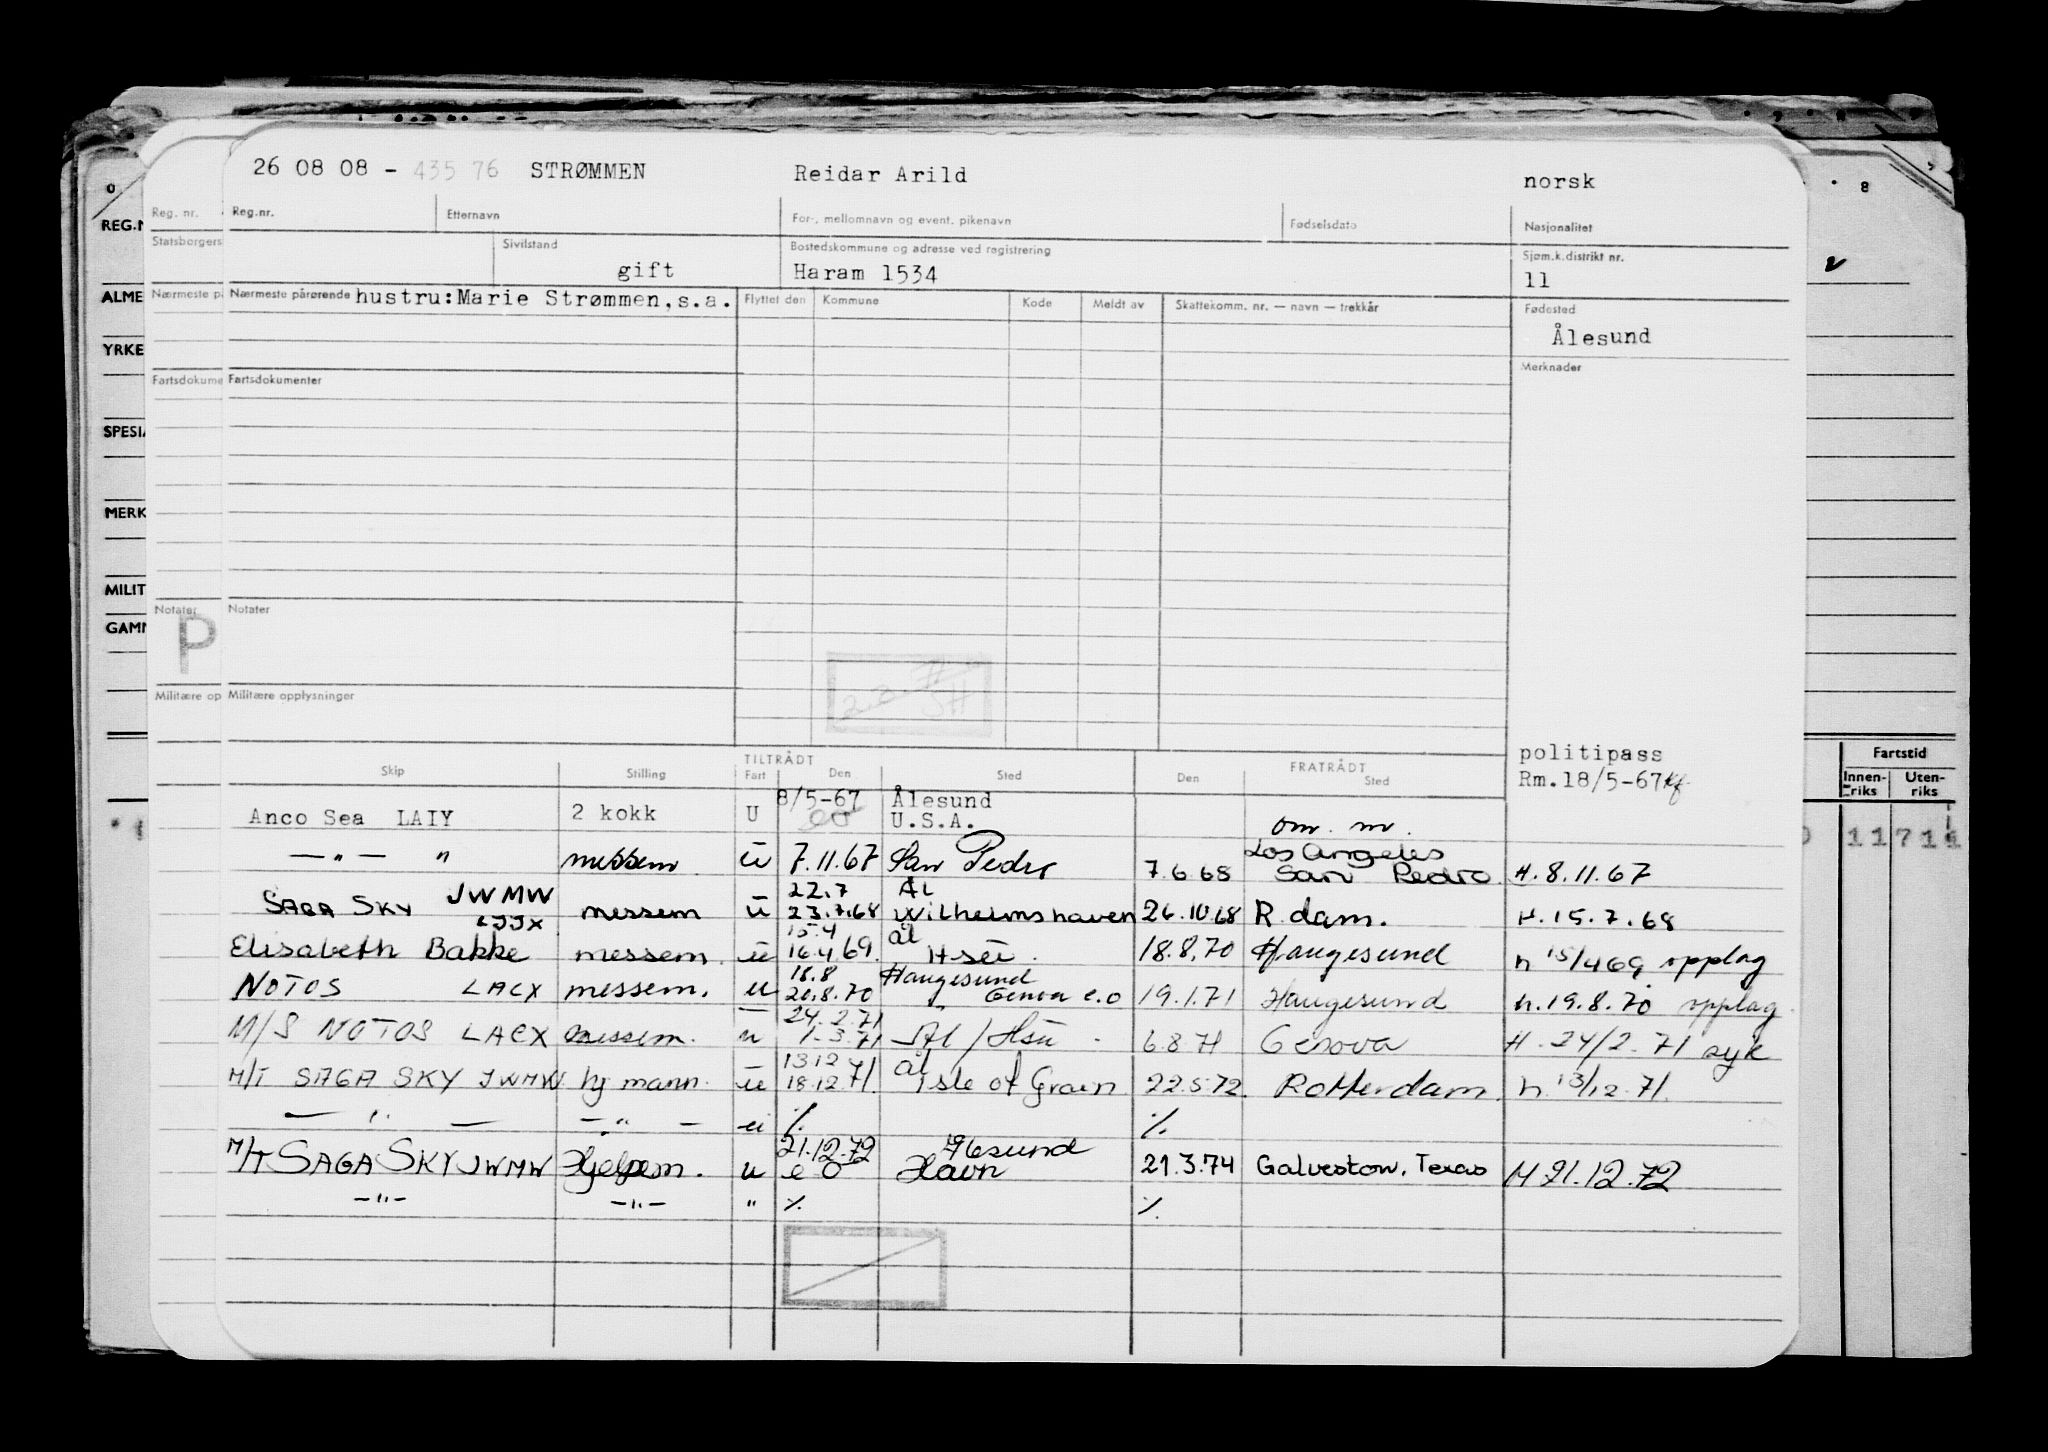 26 08 08 - 435 76 STRØMMEN Reidar Arild norsk
Reg. nr. Reg.nr. Etternavn For-, mellomnavn og event. pikenavn Fødselsdato Nasjonalitet
REG.N
Statsborgers Sivilstand Bostedskommune og adresse ved registrering Sjøm.k.distrikt nr.
gift Haram 1534 11
ALME Nærmeste på Nærmeste pårørende hustru: Marie Strømmen, s.a. Flyttet den Kommune Kode Meldt av Skattekomm. nr. — navn — trekkår Fødested
Ålesund
YRKE
Fartsdokume Fartsdokumenter Merknader
SPESIA
MERK
MILIT
Notater Notater
GAMM
P
Militære op Militære opplysninger
Skip Stilling TILTRÅDT Fart Den Sted FRATRÅDT Den Sted
politipass
Rm.18/5-67
Fartstid
Innen-riks Uten-riks
11 711
8/5-67 Ålesund
Anco Sea LAIY 2 kokk U eo U.S.A. om. m.
— " — " messem ū 7.11.67 San Pedro 7.6.68 Los Angeles San Pedro H. 8.11.67
22.7 Ål
SAGA SKY JWMW messem ū 23.7.68 Wilhelmshaven 26.10.68 R.dam. H. 15.7.68
LJJX 15.4 ål
Elisabeth Bakke messem ū 16.4.69. Hsū. 18.8.70 Haugesund h 15/4 69 opplag
18.8 Haugesund
NOTOS LACX messem. u 20.8.70 Genova e.o 19.1.71 Haugesund h. 19.8.70 opplag.
24.2.71
M/S NOTOS LACX messem. ū 1.3.71 Ål / Hsū 6.8 71 Genova H. 24/2. 71 syk
13 12 ål
M/T SAGA SKY JWMW hj mann. ū 18.12.71. Isle of Grain 22.5.72. Rotterdam. h. 13/12. 71.
— " — — " — ū ٪ ٪
21.12.72 Ålesund
M/T SAGA SKY JWMW Hjelpem. u e o Havn 21.3.74 Galveston, Texas H 21.12.72
— " — — " — " ٪ ٪